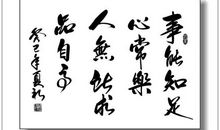 事能知足
心常樂
人無所求
品自高
癸巳年夏